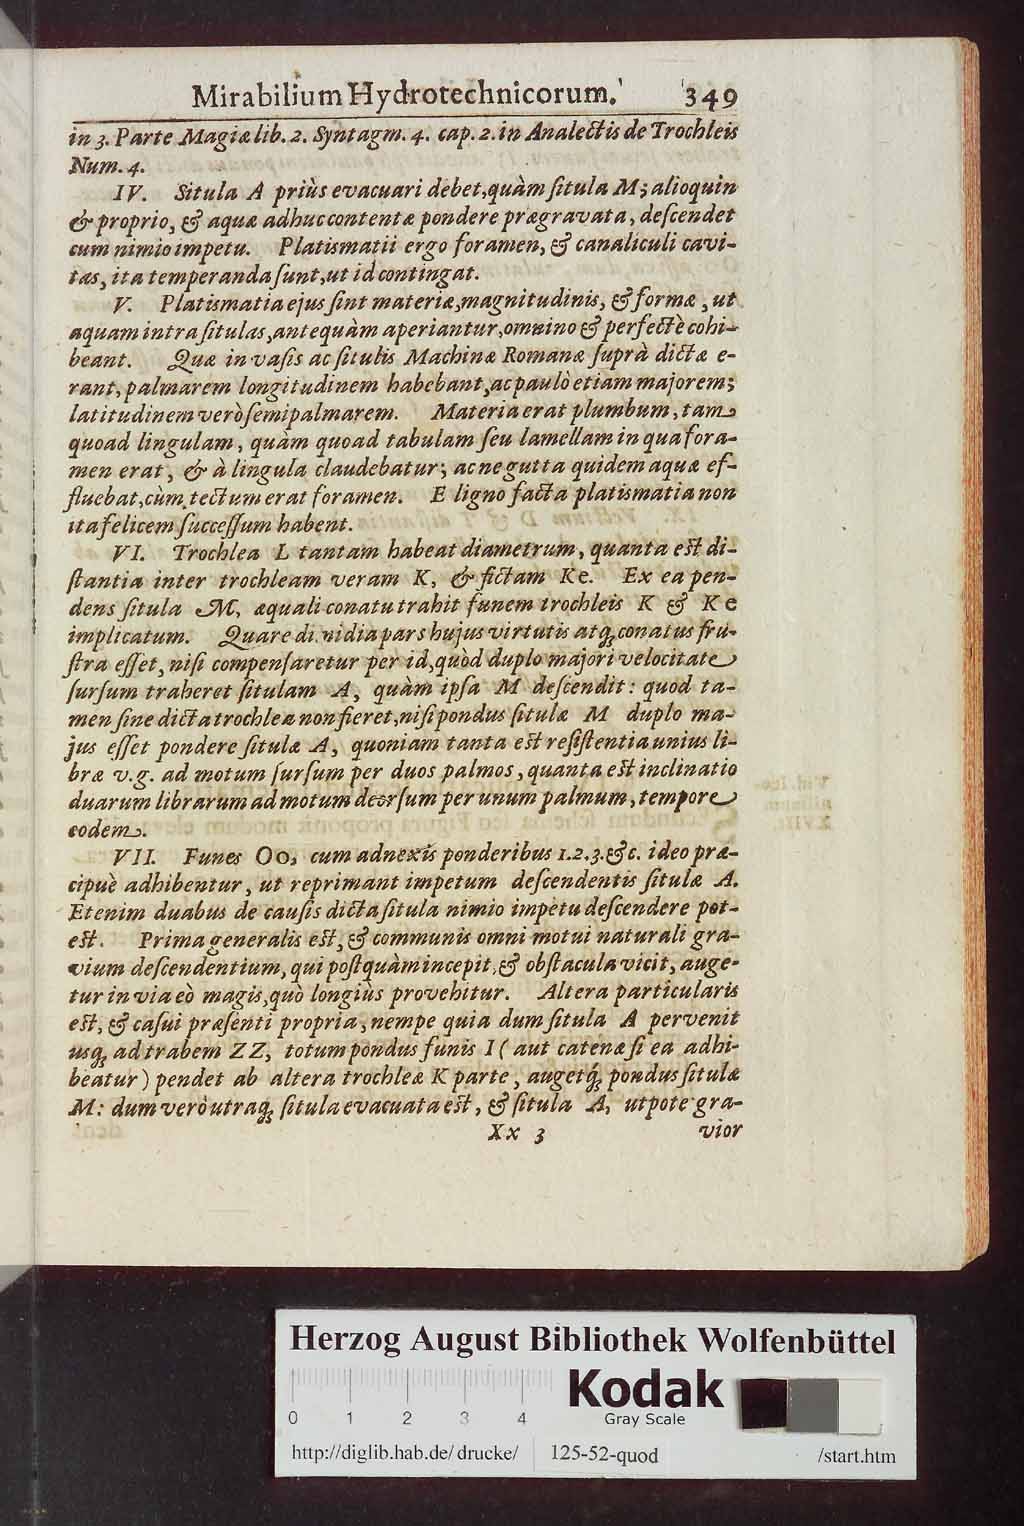 Mirabilium Hydrotechnicorum. 349
in 3. Parte Magiæ lib. 2. Syntagm. 4. cap. 2. in Analectis de Trochleis
Num. 4.
IV. Situla A priùs evacuari debet, quàm ſitula M; alioquin
& proprio, & aquæ adhuc contentæ pondere prægravata, deſcendet
cum nimio impetu. Platismatii ergo foramen, & canaliculi cavi-
tas, ita temperanda ſunt, ut id contingat.
V. Platismatia ejus ſint materiæ, magnitudinis, & formæ, ut
aquam intra ſitulas, antequàm aperiantur, omnino & perfectè cohi-
beant. Quæ in vaſis ac ſitulis Machinæ Romanæ ſuprà dictæ e-
rant, palmarem longitudinem habebant, ac paulò etiam majorem;
latitudinem verò ſemipalmarem. Materia erat plumbum, tam
quoad lingulam, quàm quoad tabulam ſeu lamellam in qua fora-
men erat, & à lingula claudebatur; ac ne gutta quidem aquæ ef-
fluebat, cùm tectum erat foramen. E ligno facta platismatia non
ita felicem ſucceſſum habent.
VI. Trochlea L tantam habeat diametrum, quanta eſt di-
ſtantia inter trochleam veram K, & fictam Ke. Ex ea pen-
dens ſitula M, æquali conatu trahit funem trochleis K & Ke
implicatum. Quare dimidia pars hujus virtutis atq; conatus fru-
ſtra eſſet, niſi compenſaretur per id, quòd duplo majori velocitate
ſurſum traheret ſitulam A, quàm ipſa M deſcendit: quod ta-
men ſine dicta trochlea non fieret, niſi pondus ſitulæ M duplo ma-
jus eſſet pondere ſitulæ A, quoniam tanta eſt reſiſtentia unius li-
bræ v.g. ad motum ſurſum per duos palmos, quanta eſt inclinatio
duarum librarum ad motum deorſum per unum palmum, tempore
eodem.
VII. Funes Oo, cum adnexis ponderibus 1.2.3. &c. ideo præ-
cipuè adhibentur, ut reprimant impetum deſcendentis ſitulæ A.
Etenim duabus de cauſis dicta ſitula nimio impetu deſcendere pot-
eſt. Prima generalis eſt, & communis omni motui naturali gra-
vium deſcendentium, qui poſtquàm incepit, & obſtacula vicit, auge-
tur in via eò magis, quò longiùs provehitur. Altera particularis
eſt, & caſui præſenti propria, nempe quia dum ſitula A pervenit
usq; ad trabem ZZ, totum pondus funis I (aut catenæ ſi ea adhi-
beatur) pendet ab altera trochleæ K parte, augetq́; pondus ſitulæ
M: dum verò utraq; ſitula evacuata eſt, & ſitula A, utpote gra-
Xx 3 vior
Herzog August Bibliothek Wolfenbüttel
Kodak
Gray Scale
0 1 2 3 4
http://diglib.hab.de/drucke/ 125-52-quod /start.htm